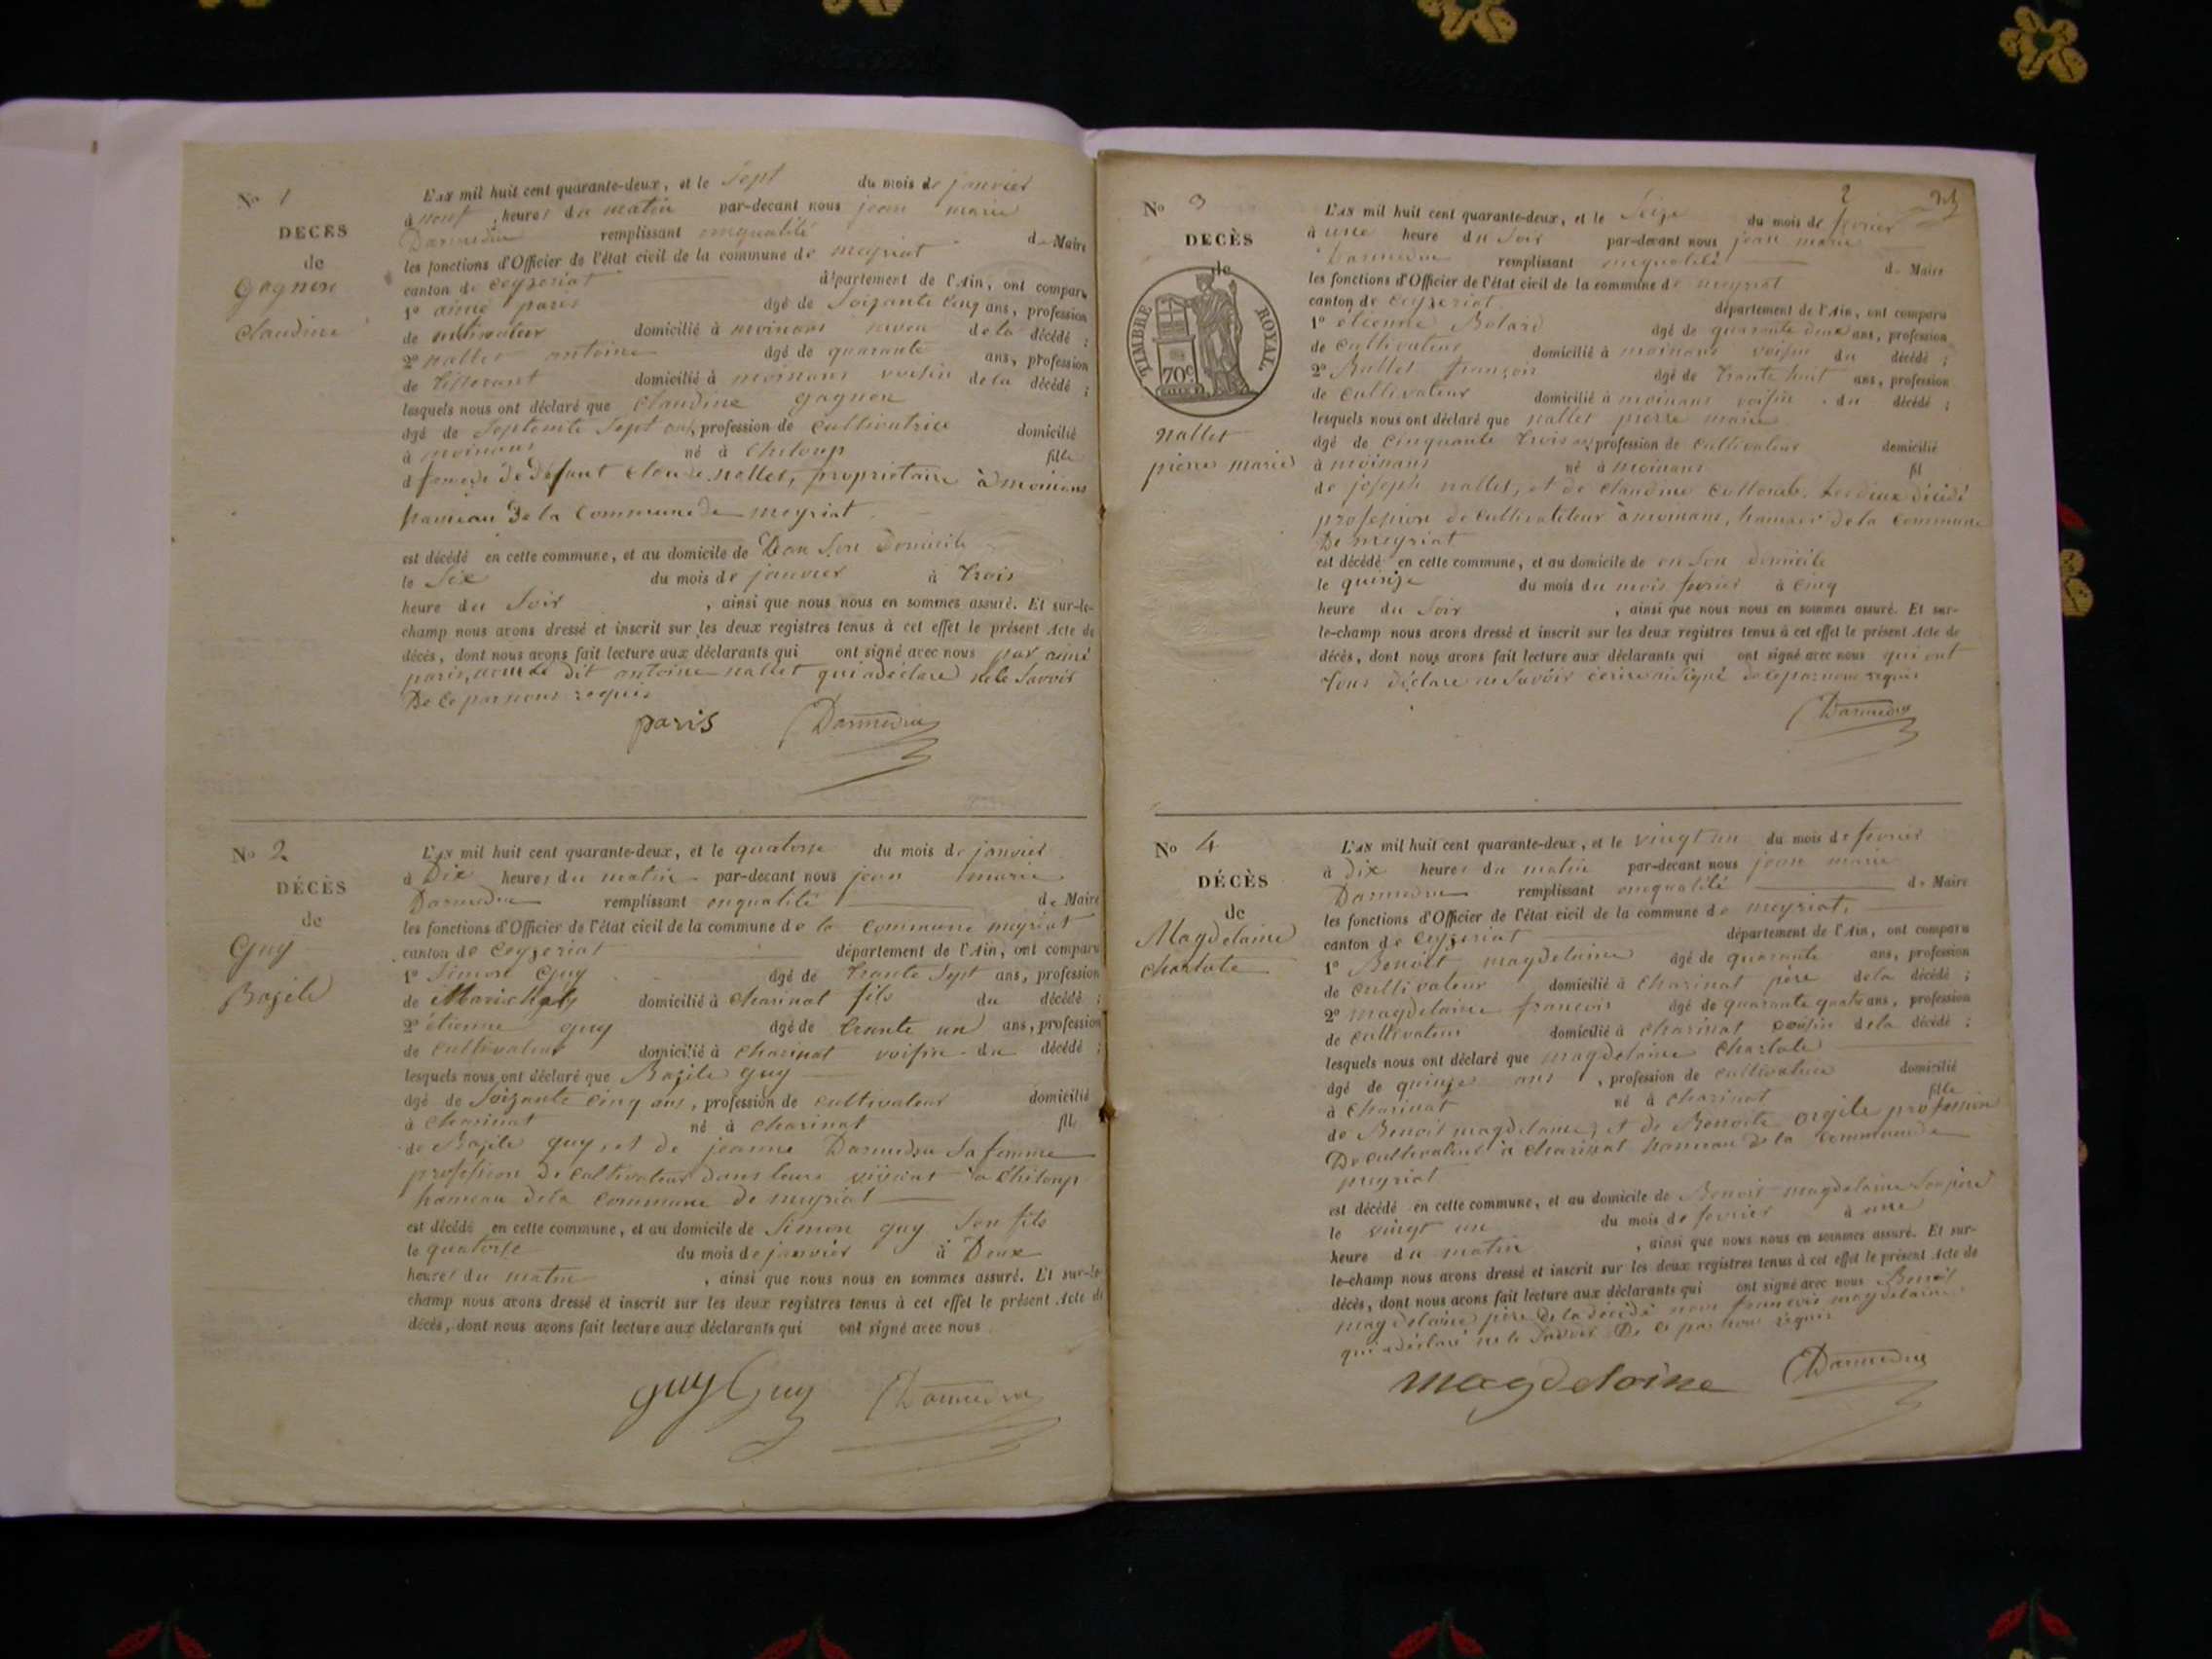 No 1
DÉCÈS
de
Gagneu
Claudine
L'AN mil huit cent quarante-deux, et le Sept du mois de janvier
à neuf heures du matin par-devant nous jean marie
Darmedru remplissant enqualité de Maire
les fonctions d'Officier de l'état civil de la commune de meyriat
canton de Ceyzeriat département de l'Ain, ont comparu
1º aimé paris âgé de Soizante Cinq ans, profession
de cultivateur domicilié à moinans neveu de la décédé ;
2º nallet antoine âgé de quarante ans, profession
de Tisserant domicilié à moinans voisin de la décédé ;
lesquels nous ont déclaré que Claudine gagneu
âgé de Septente Sept ans, profession de Cultivatrice domicilié
à moinans né à Chiloup fille
de défunt Claude nallet, propriétaire à moinans
hameau de la Commune de meyriat
est décédé en cette commune, et au domicile de Dan Son Domicile
le Six du mois de janvier à Trois
heure du Soir , ainsi que nous nous en sommes assuré. Et sur-le-
champ nous avons dressé et inscrit sur les deux registres tenus à cet effet le présent Acte de
décès, dont nous avons fait lecture aux déclarants qui ont signé avec nous par aimé
paris, dit antoine nallet qui a déclaré ne le Savoir
De Ce par nous requis
paris Darmedru
No 2
DÉCÈS
de
Guy
Bazile
L'AN mil huit cent quarante-deux, et le quatorze du mois de janvier
à Dix heures du matin par-devant nous jean marie
Darmedru remplissant enqualité de Maire
les fonctions d'Officier de l'état civil de la commune de la Commune meyriat
canton de Ceyzeriat département de l'Ain, ont comparu
1º Simon Guy âgé de Trante Sept ans, profession
de Marichal domicilié à Charinat fils du décédé ;
2º étienne guy âgé de Trante un ans, profession
de Cultivateur domicilié à Charinat voisin du décédé ;
lesquels nous ont déclaré que Bazile guy
âgé de Soizante Cinq ans, profession de Cultivateur domicilié
à Charinat né à Charinat fils
de Bazile guy, et de jeanne Darmedru Sa femme
profession de Cultivateur dans leurs vivant à Chiloup
hameau dela Commune de meyriat
est décédé en cette commune, et au domicile de Simon guy Son fils
le quatorze du mois de janvier à Deux
heures du matin , ainsi que nous nous en sommes assuré. Et sur-le-
champ nous avons dressé et inscrit sur les deux registres tenus à cet effet le présent Acte de
décès, dont nous avons fait lecture aux déclarants qui ont signé avec nous
guy Guy Darmedru
2
No 3
DÉCÈS
de
TIMBRE ROYAL.
70c
nallet
pierre marie
L'AN mil huit cent quarante-deux, et le Seize du mois de fevrier
à une heure du Soir par-devant nous jean marie
Darmedru remplissant enqualité de Maire
les fonctions d'Officier de l'état civil de la commune de meyriat
canton de Ceyzeriat département de l'Ain, ont comparu
1º etienne Bolard âgé de quarante deux ans, profession
de Cultivateur domicilié à moinans voisin du décédé ;
2º françois âgé de Trante huit ans, profession
de Cultivateur domicilié à moinans voisin du décédé ;
lesquels nous ont déclaré que nallet pierre marie
âgé de Cinquante Trois ans, profession de Cultivateur domicilié
à moinans né à moinans fil
de joseph nallet, et de Claudine décédé
profession de Cultivateur à moinans, hameau dela Commune
De meyriat
est décédé en cette commune, et au domicile de en Son domicile
le quinze du mois du mois fevrier à Cinq
heure du Soir , ainsi que nous nous en sommes assuré. Et sur-
le-champ nous avons dressé et inscrit sur les deux registres tenus à cet effet le présent Acte de
décès, dont nous avons fait lecture aux déclarants qui ont signé avec nous qui ont
Tous déclare ne Savoir écrire ni Signé de ce par nous requis
Darmedru
No 4
DÉCÈS
de
Magdelaine
Charlote
L'AN mil huit cent quarante-deux, et le vingt un du mois de fevrier
à Dix heures du matin par-devant nous jean marie
Darmedru remplissant enqualité de Maire
les fonctions d'Officier de l'état civil de la commune de meyriat
canton de Ceyzeriat département de l'Ain, ont comparu
1º Benoit magdelaine âgé de quarante ans, profession
de Cultivateur domicilié à Charinat père dela décédé ;
2º magdelaine francois âgé de quarante quatre ans, profession
de Cultivateur domicilié à Charinat dela décédé ;
lesquels nous ont déclaré que magdelaine Charlote
âgé de quinze ans , profession de Cultivatrice domicilié
à Charinat né à Charinat fille
de Benoit magdelaine, et de Benoite profession
De Cultivateur à Charinat hameau de la Commune de
meyriat
est décédé en cette commune, et au domicile de Benoit magdelaine Son père
le vingt un du mois de fevrier à une
heure du matin , ainsi que nous nous en sommes assuré. Et sur-
le-champ nous avons dressé et inscrit sur les deux registres tenus à cet effet le présent Acte de
décès, dont nous avons fait lecture aux déclarants qui ont signé avec nous Benoit
magdelaine père de la décédé non francois magdelaine
qui a déclaré ne le Savoir De Ce par nous requis
magdeloine Darmedru